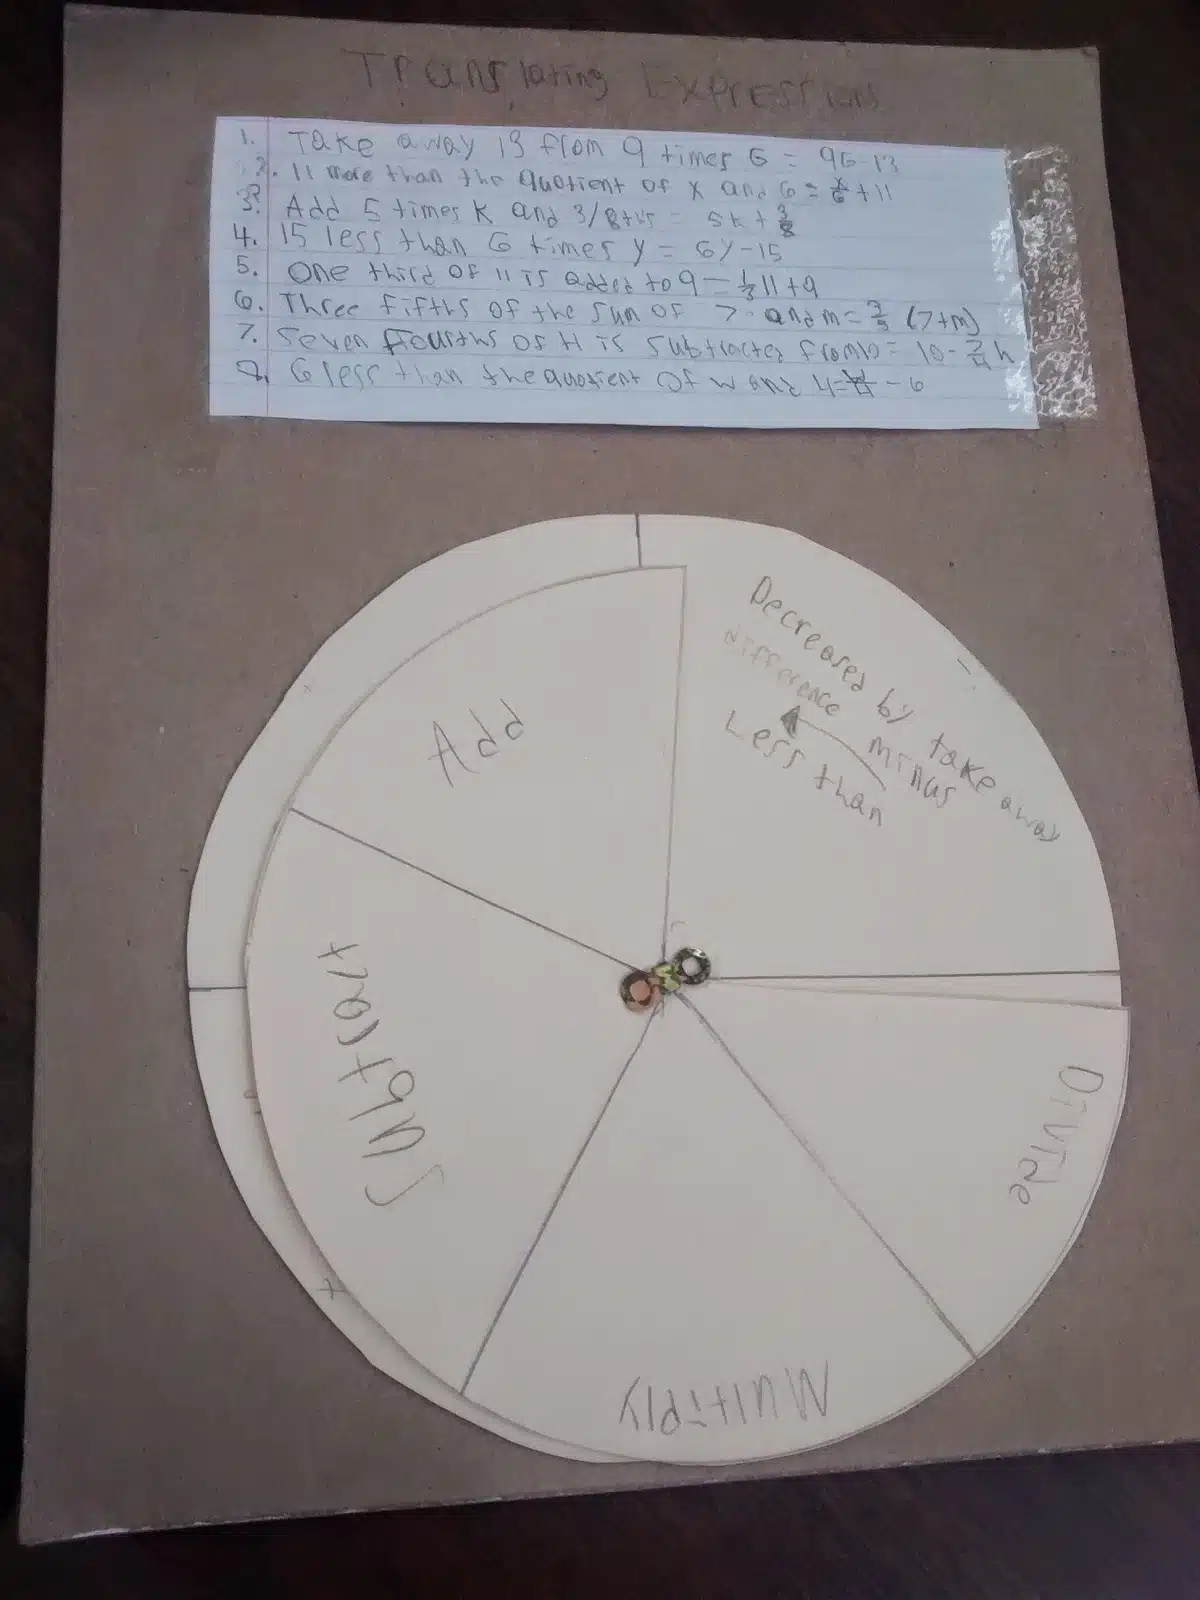 Translating Expressions
1. Take away 13 from 9 times G = 9G-13
2. 11 more than the quotient of x and 6 = x/6 + 11
3. Add 5 times K and 3/8ths = 5k + 3/8
4. 15 less than 6 times y = 6y-15
5. One third of 11 is added to 9 = 1/3 11+9
6. Three fifths of the sum of 7 and m = 3/5 (7+m)
7. Seven fourths of H is subtracted from 10 = 10 - 7/4 h
8. 6 less than the quotient of w and 4 = w/4 - 6
Decreased by take away
difference minus
Less than
Add
Subtract
Divide
Multiply